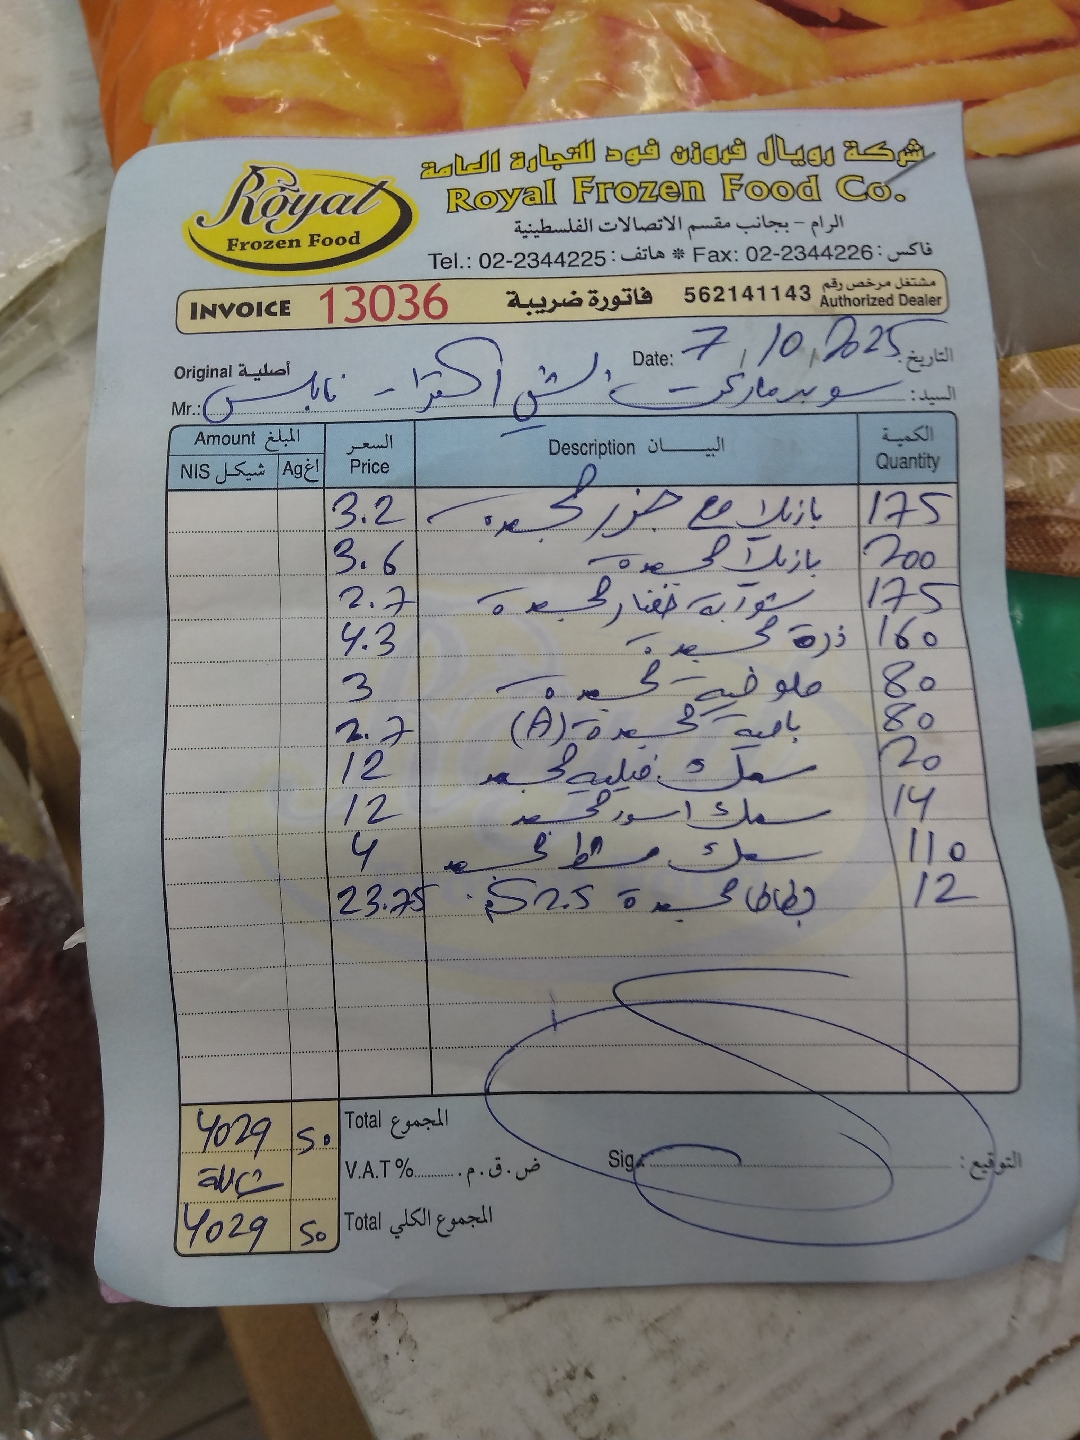 Royal
Frozen Food
شركة رويال فروزن فود للتجارة العامة
Royal Frozen Food Co.
الرام - بجانب مقسم الاتصالات الفلسطينية
Tel.: 02-2344225 : هاتف * Fax: 02-2344226 : فاكس
INVOICE 13036 فاتورة ضريبة 562141143 مشتغل مرخص رقم Authorized Dealer
Original أصلية Date: 7/10/2025 التاريخ
Mr.: سوبرماركت اكسترا - نابلس السيد:
Amount المبلغ السعر Price Description البيــــان الكمية Quantity
NIS شيكل Ag اغ
3.2 بازيلا مع جزر مجمدة 175
3.6 بازيلا مجمدة 200
2.7 مجمدة 175
4.3 ذرة مجمدة 160
3 ملوخية مجمدة 80
2.7 بامية مجمدة (A) 80
12 سمك فيليه مجمد 20
12 سمك مجمد 14
4 سمك مجمد 110
23.75 بطاطا مجمدة 2.5 كغم 12
4029 50 Total المجموع
شاملة V.A.T% ض.ق.م.
4029 50 Total المجموع الكلي
Sig.: التوقيع: